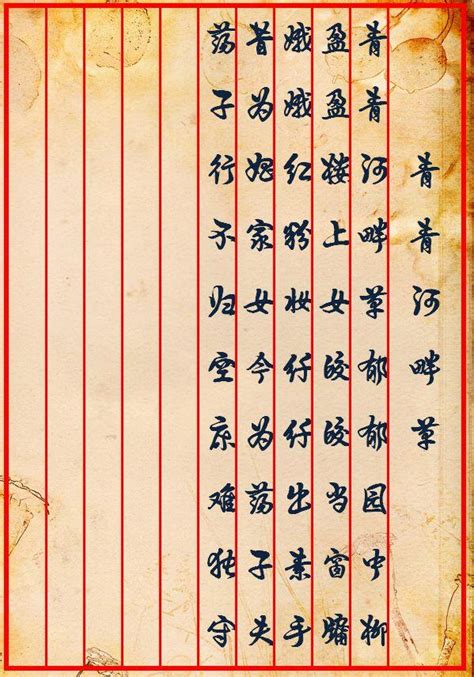 青青河畔草
青青河畔草郁郁园中柳
盈盈楼上女皎皎当窗牖
娥娥红粉妆仟仟出素手
昔为娼家女今为荡子夫
荡子行不归空床难独守